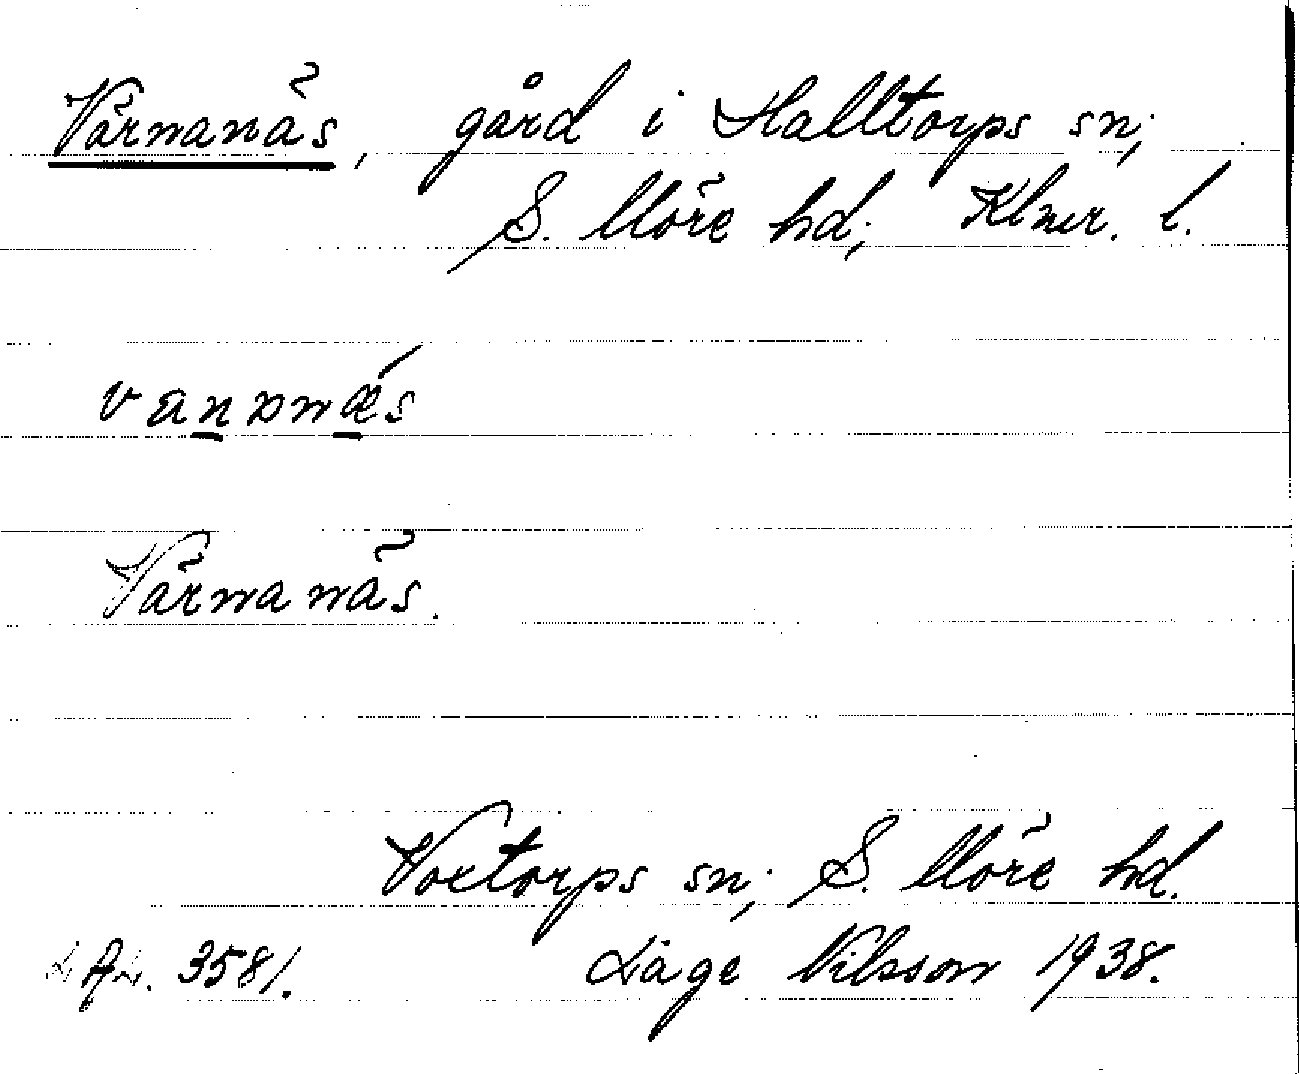 Värnanäs, gård i Halltorps sn;
S. Möre hd; Klmr. l.
vanənæ´s
Värnanäs.
Voxtorps sn; S. Möre hd.
3581. Låge Nilsson 1938.